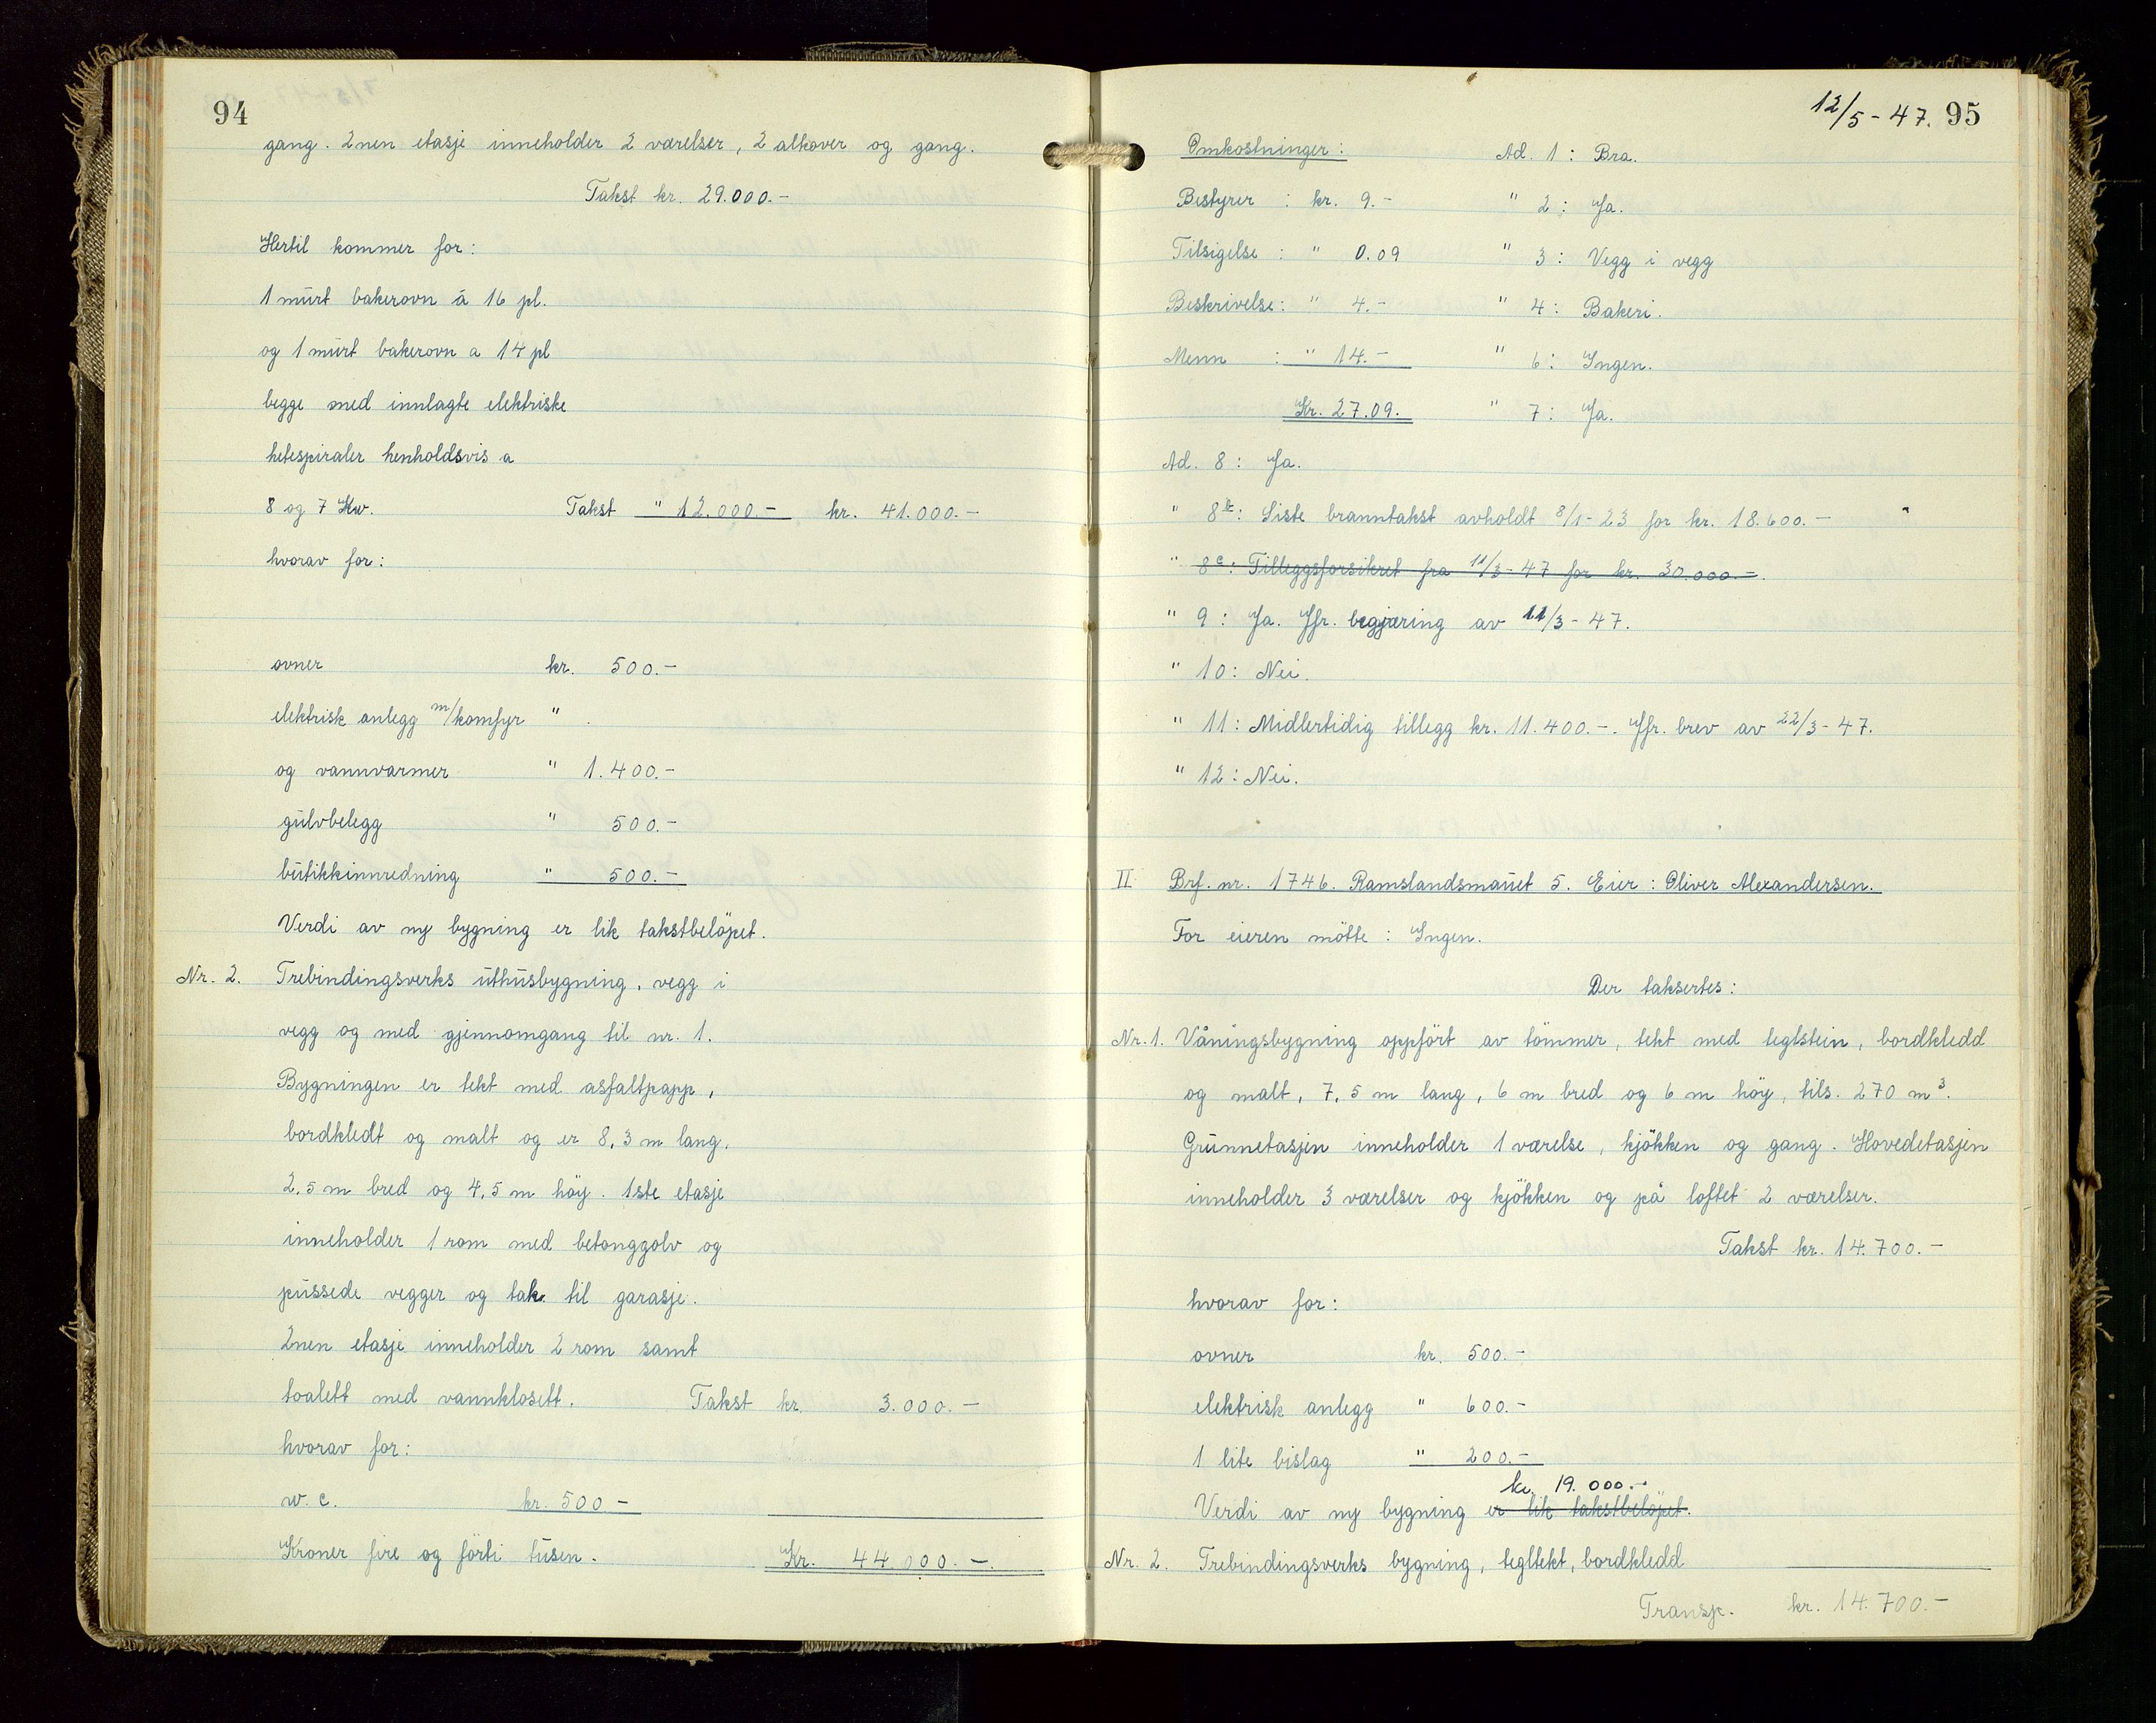 94
gang. 2nen etasje inneholder 2 værelser, 2 alkover og gang.
Takst kr. 29.000.-
Hertil kommer for:
1 murt bakerovn á 16 pl.
og 1 murt bakerovn a 14 pl
begge med innlagte elektriske
hetespiraler henholdsvis a
8 og 7 Kw. Takst " 12.000.- kr. 41.000.-
hvorav for:
ovner kr. 500.-
elektrisk anlegg m/komfyr "
og vannvarmer " 1.400.-
gulvbelegg " 500.-
butikkinnredning " 500.-
Verdi av ny bygning er lik takstbelöpet.
Nr. 2. Trebindingsverks uthusbygning, vegg i
vegg og med gjennomgang til nr. 1.
Bygningen er tekt med asfaltpapp,
bordkledt og malt og er 8,3 m lang,
2,5 m bred og 4,5 m höy. 1ste etasje
inneholder 1 rom med betonggolv og
pussede vegger og tak til garasje.
2nen etasje inneholder 2 rom samt
toalett med vannklosett. Takst kr. 3.000.-
hvorav for:
w.c. kr. 500-
Kroner fire og förti tusen. Kr. 44.000.-.
12/5-47. 95
Omkostninger: Ad. 1: Bra.
Bestyrer : kr. 9.- " 2: Ja.
Tilsigelse : " 0.09 " 3: Vegg i vegg
Beskrivelse: " 4.- " 4: Bakeri.
Menn : " 14.- " 6: Ingen.
Kr. 27.09. " 7: Ja.
Ad. 8: Ja.
" 8b: Siste branntakst avholdt 8/1-23 for kr. 18.600.-
" 8c: Tilleggsforsikret fra 11/3-47 for kr. 30.000.-.
" 9: Ja. Jfr. begjæring av 11/3-47.
" 10: Nei.
" 11: Midlertidig tillegg kr. 11.400.-. Jfr. brev av 22/3-47.
" 12: Nei.
II Brf. nr. 1746. Ramslandsmauet 5. Eier: Oliver Alexandersen.
For eieren mötte: Ingen.
Der taksertes:
Nr. 1. Våningsbygning oppfört av tömmer, tekt med teglstein, bordkledd
og malt, 7,5 m lang, 6 m bred og 6 m höy, tils. 270 m³.
Grunnetasjen inneholder 1 værelse, kjökken og gang. Hovedetasjen
inneholder 3 værelser og kjökken og på loftet 2 værelser.
Takst kr. 14.700.-
hvorav for:
ovner kr. 500.-
elektrisk anlegg " 600.-
1 lite bislag " 200.-
kr. 19.000.-
Verdi av ny bygning er lik takstbelöpet.
Nr. 2. Trebindingsverks bygning, tegltekt, bordkledd
Transp. kr. 14.700.-